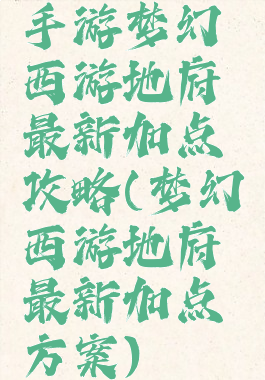 手游梦幻
西游地府
最新加点
攻略(梦幻
西游地府
最新加点
方案)